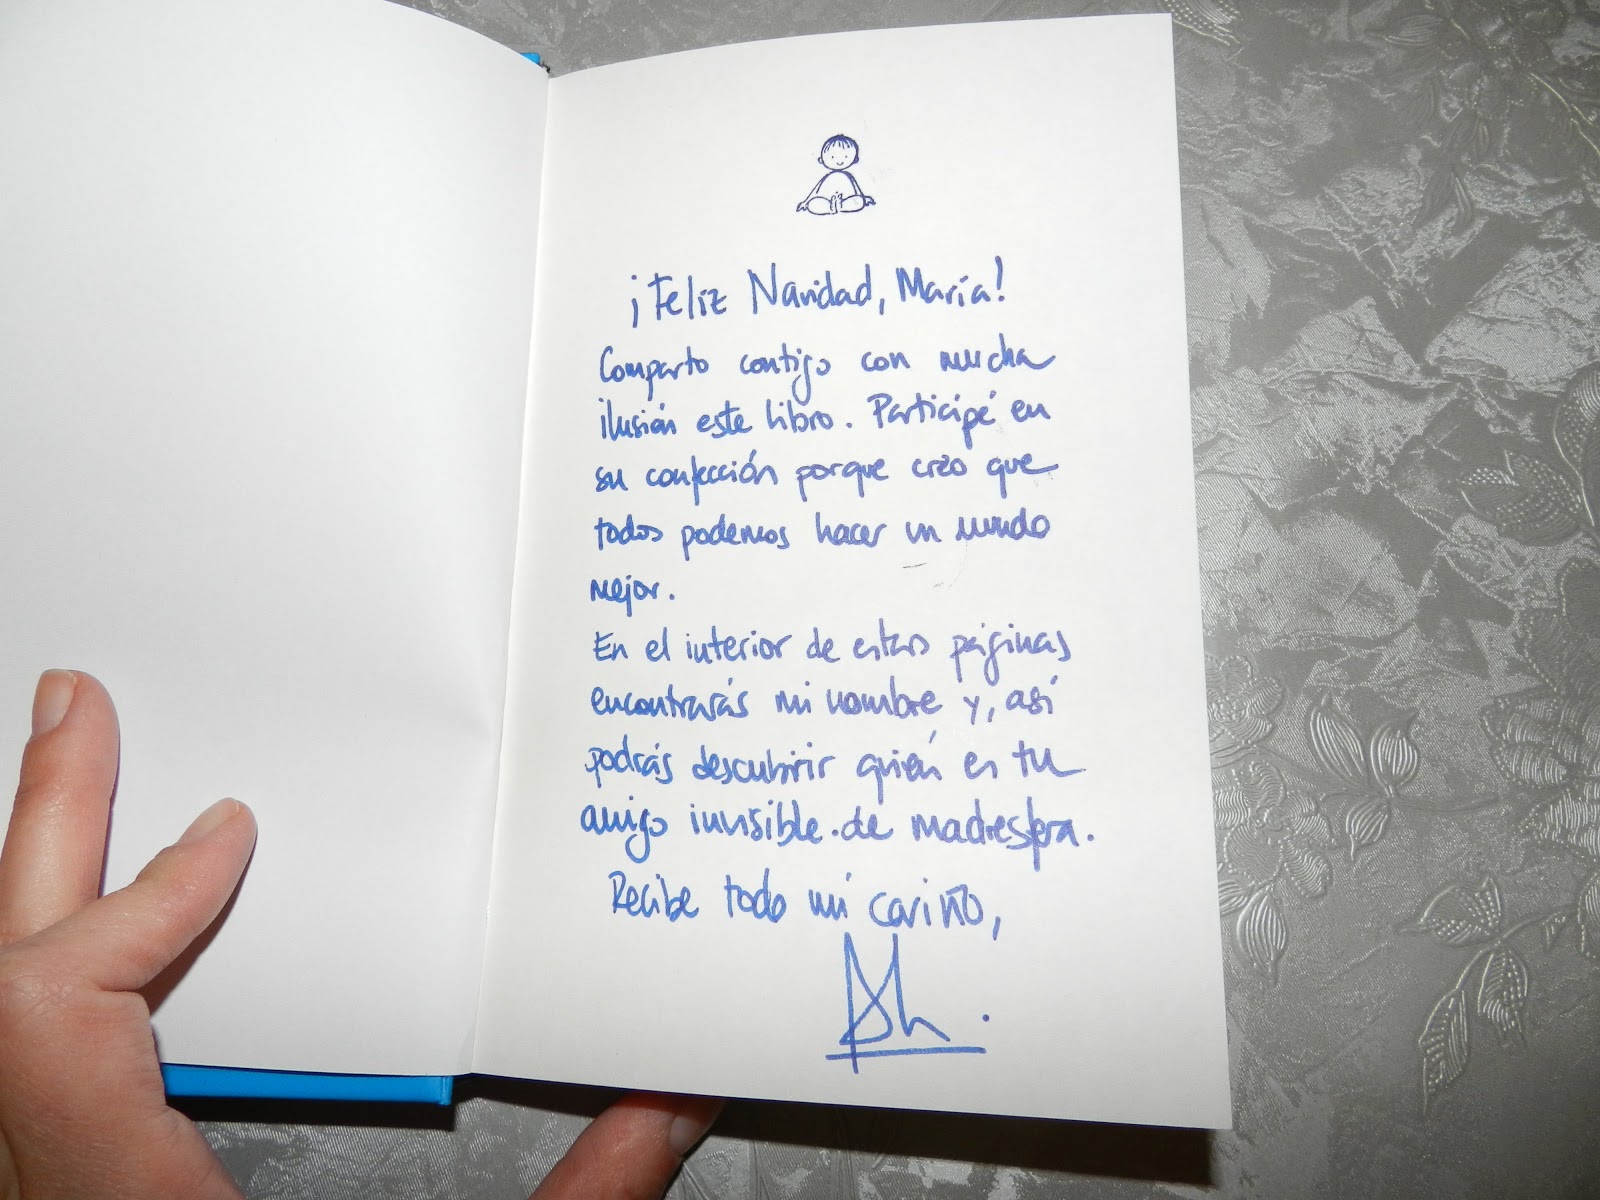 ¡Feliz Navidad, María!
Comparto contigo con mucha
ilusión este libro. Participé en
su confección porque creo que
todos podemos hacer un mundo
mejor.
En el interior de estas páginas
encontrarás mi nombre y, así
podrás descubrir quién es tu
amigo invisible de madresfera.
Recibe todo mi cariño,